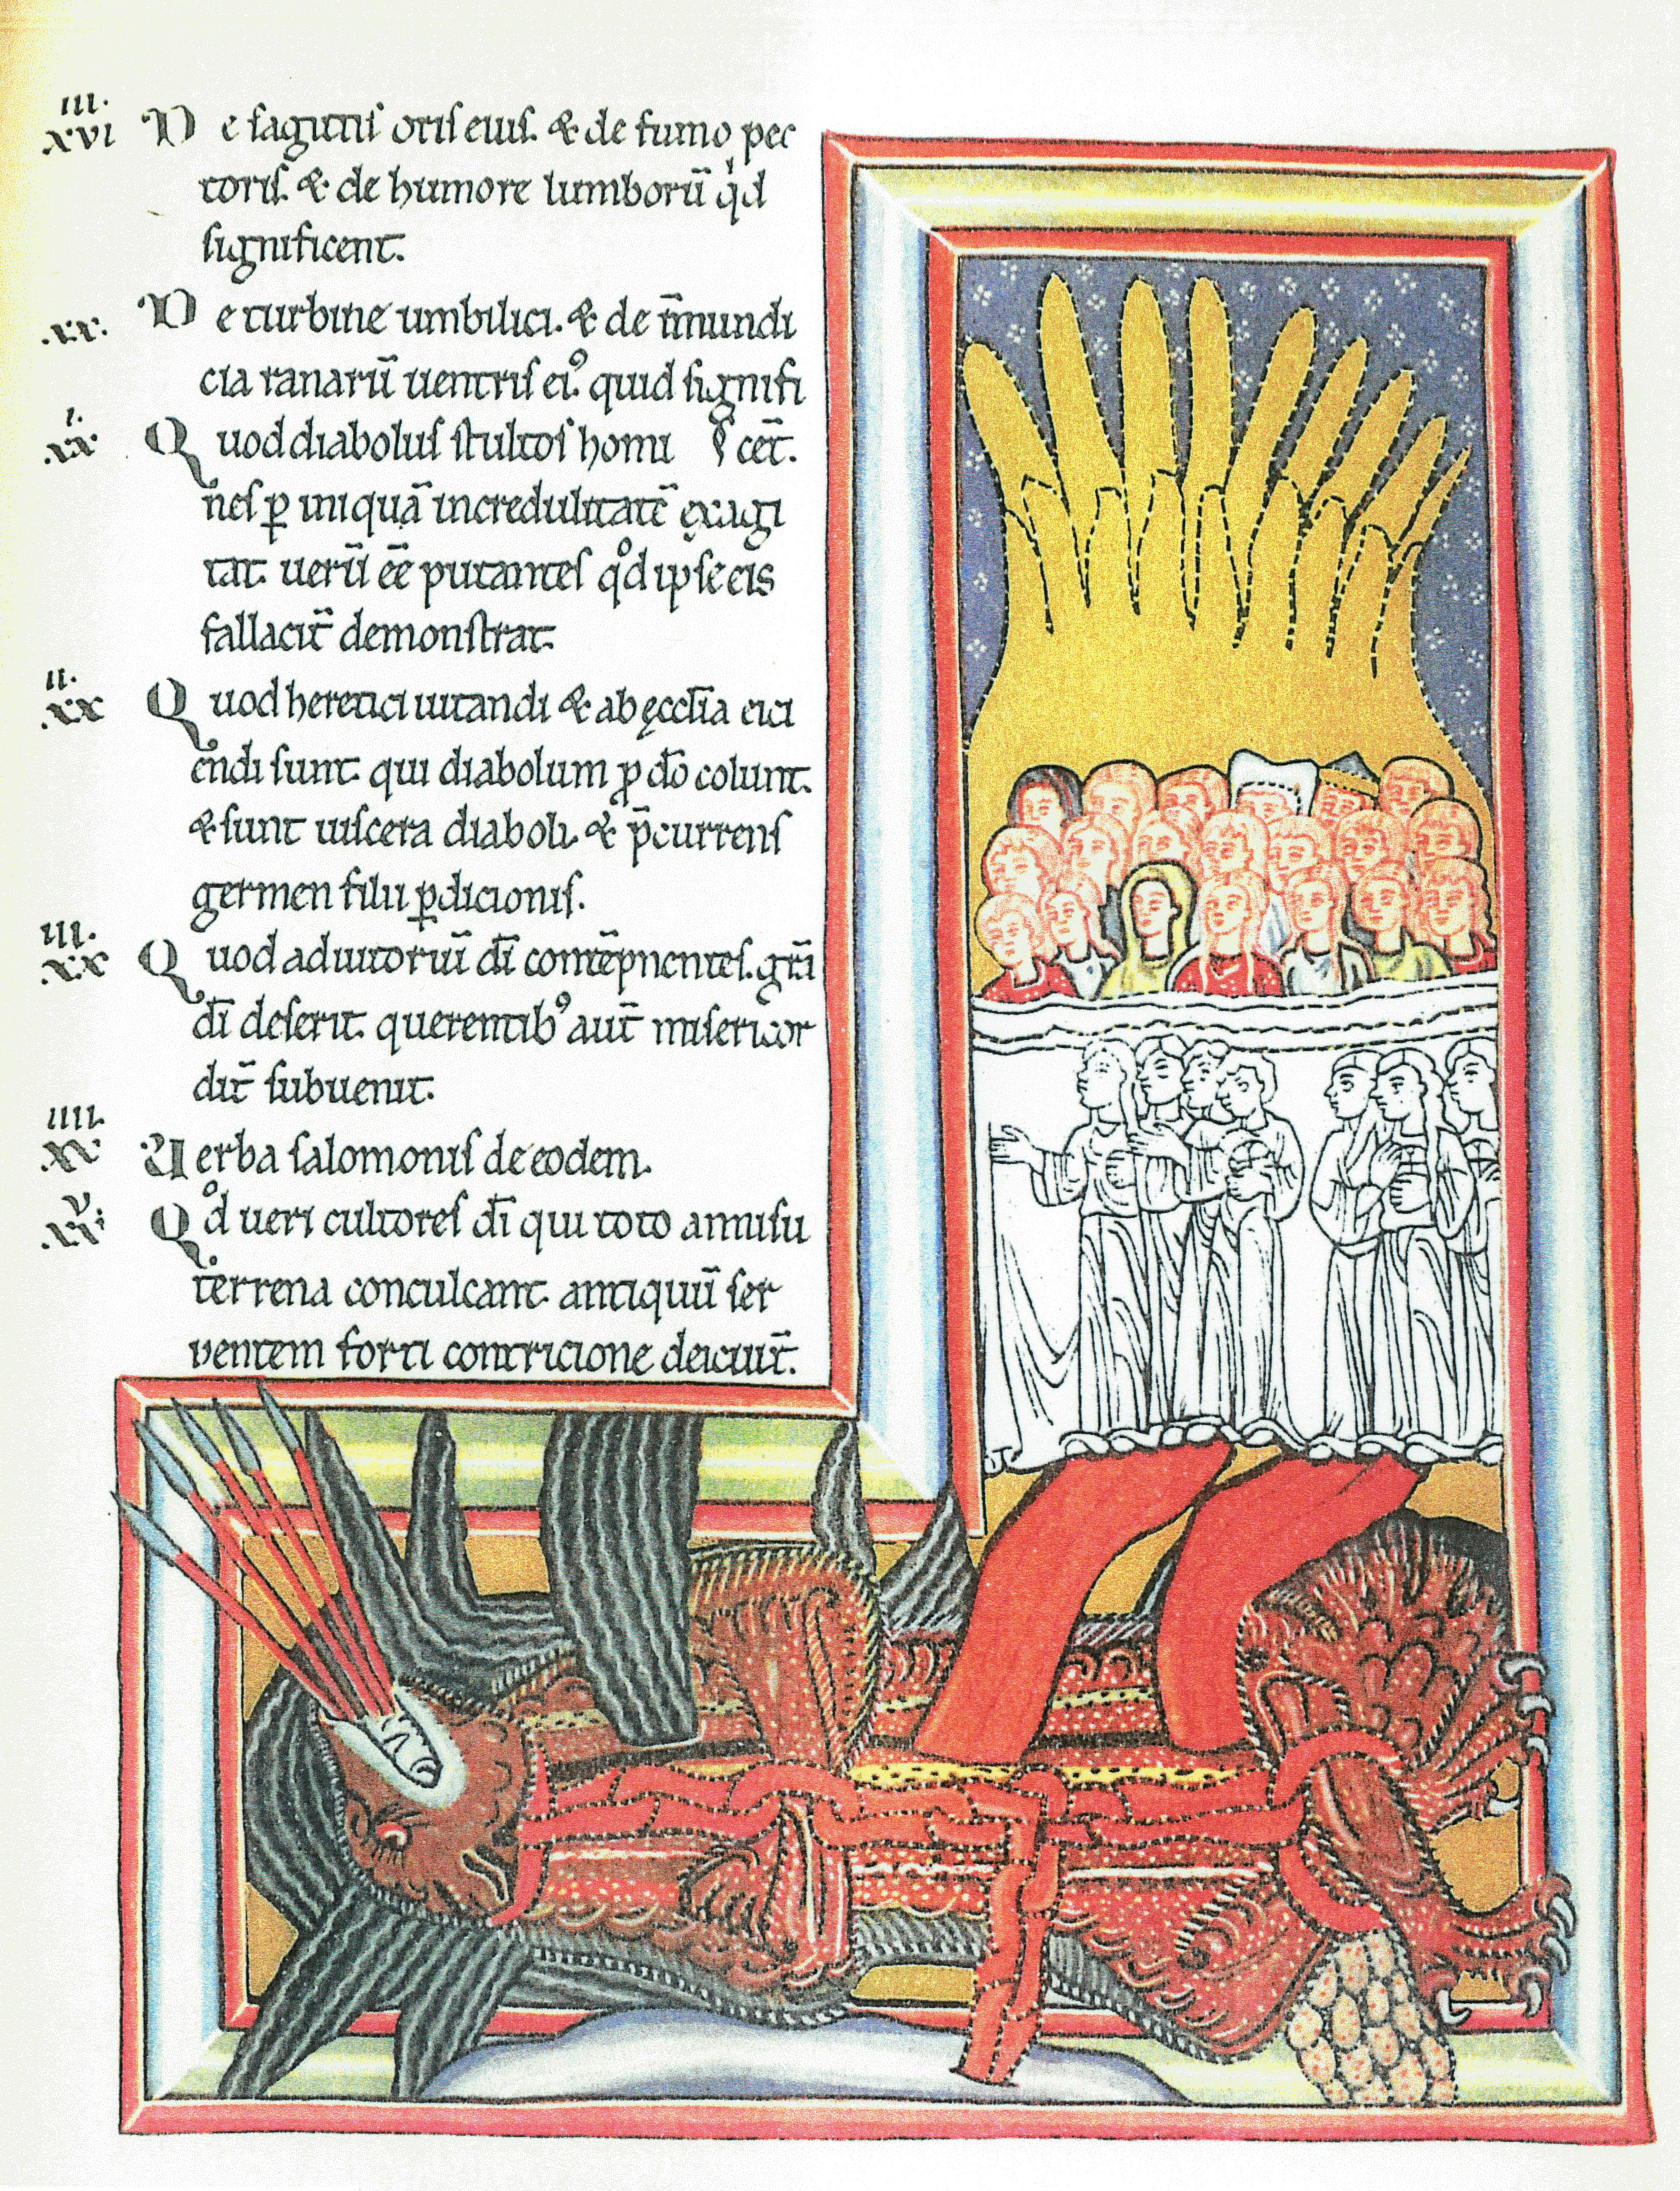 III.
XVI De sagittis oris eius. & de fumo pec
toris. & de humore lumborū qd
significent.
.XX. De turbine umbilici. & de īmundi
cia ranarū uentris ei⁹ quid signifi
I.
.XX. Quod diabolus stultos homi cēt.
nes ꝑ iniquā incredulitatē exagi
tat. uerū ēē putantes qd ipse eis
fallacit̄ demonstrat.
II.
.XX Quod heretici uitandi & ab ęccl̄ia eici
endi sunt. qui diabolum ꝓ dō colunt.
& sunt uiscera diaboli. & p̄currens
germen filii ꝑdicionis.
III.
.XX Quod adiutoriū dī contēpnentes. grā
dī deserit. querentib⁹ aut̄ misericor
dit̄ subuenit.
IIII.
.XX Verba salomonis de eodem.
V.
.XX. Qd ueri cultores dī qui toto annisu
terrena conculcant. antiquū ser
pentem forti contricione deiciūt̄.